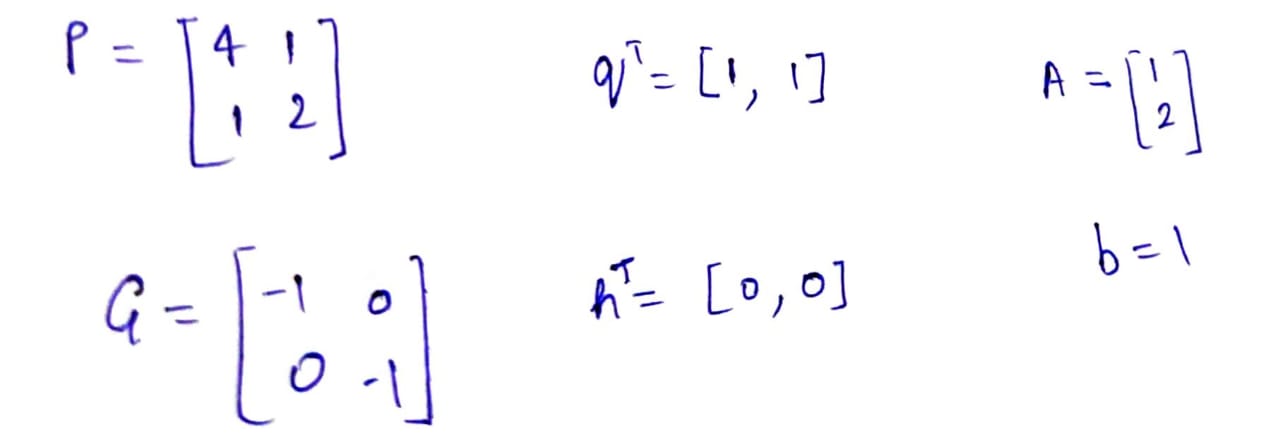 P = [4 1
1 2]
q^T = [1, 1]
A = [1
2]
G = [-1 0
0 -1]
h^T = [0, 0]
b = 1